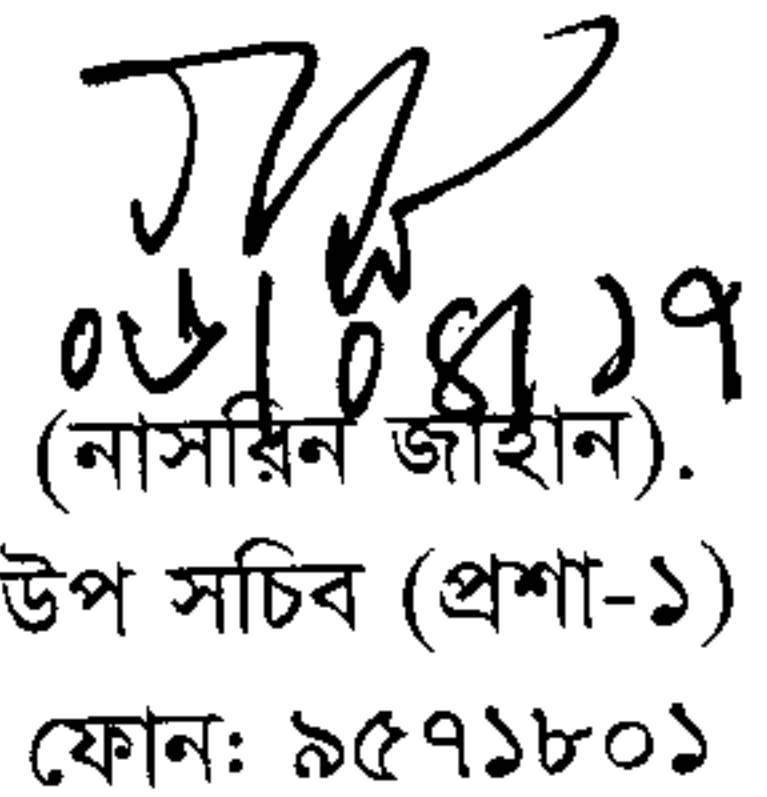 ০৬/০৪/১৭
(নাসরিন জাহান).
উপ সচিব (প্রশা-১)
ফোন: ৯৫৭১৮০১